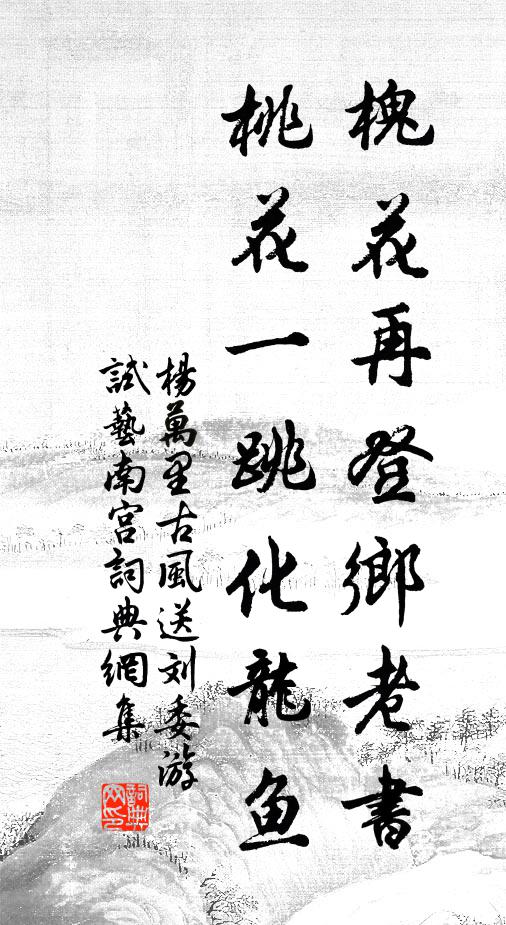 槐花再登鄉老書
桃花一跳化龍魚
楊萬里古風送刘委游
試藝南宮詞典網集
詞典网印